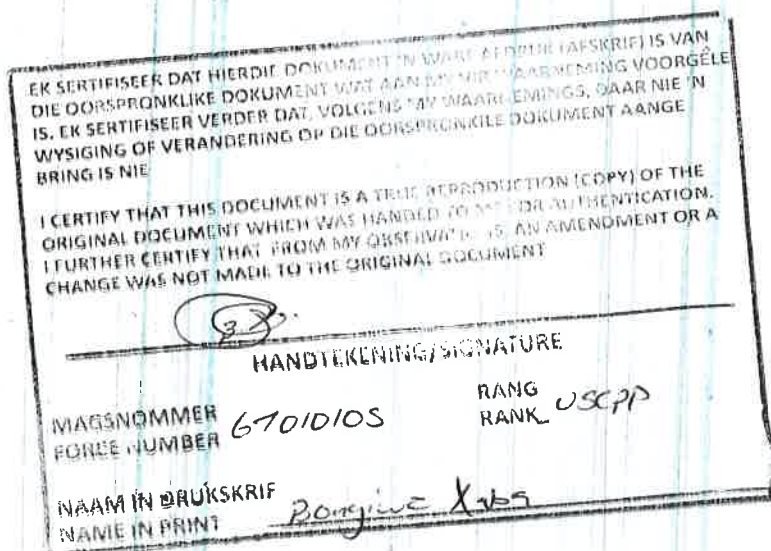 EK SERTIFISEER DAT HIERDIE DOKUMENT 'N WARE AFDRUK (AFSKRIF) IS VAN
DIE OORSPRONKLIKE DOKUMENT WAT AAN MY VIR WAARNEMING VOORGÊLE
IS. EK SERTIFISEER VERDER DAT, VOLGENS MY WAARNEMINGS, DAAR NIE 'N
WYSIGING OF VERANDERING OP DIE OORSPRONKILE DOKUMENT AANGE
BRING IS NIE
I CERTIFY THAT THIS DOCUMENT IS A TRUE REPRODUCTION (COPY) OF THE
ORIGINAL DOCUMENT WHICH WAS HANDED TO ME FOR AUTHENTICATION.
I FURTHER CERTIFY THAT FROM MY OBSERVATIONS, AN AMENDMENT OR A
CHANGE WAS NOT MADE TO THE ORIGINAL DOCUMENT
HANDTEKENING/SIGNATURE
MAGSNOMMER
FORCE NUMBER 6701010S
RANG
RANK USCPP
NAAM IN DRUKSKRIF
NAME IN PRINT Bongiwe Xaba